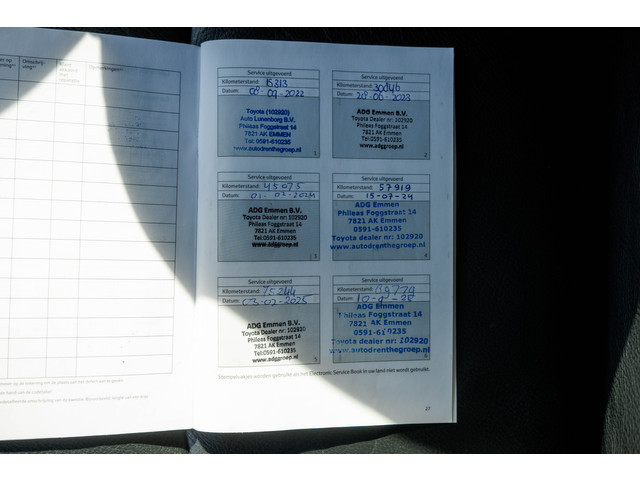 Service uitgevoerd
Kilometerstand: 15313
Datum: 09-2022
Toyota (102920)
Auto Lunenborg B.V.
Phileas Foggstraat 14
7821 AK EMMEN
Tel: 0591-610235
www.autodrenthegroep.nl
1
Service uitgevoerd
Kilometerstand:
Datum: 06-2023
ADG Emmen B.V.
Toyota Dealer nr: 102920
Phileas Foggstraat 14
7821 AK Emmen
Tel:0591-610235
www.adggroep.nl
2
Service uitgevoerd
Kilometerstand: 45073
Datum:
ADG Emmen B.V.
Toyota Dealer nr: 102920
Phileas Foggstraat 14
7821 AK Emmen
Tel:0591-610235
www.adggroep.nl
3
Service uitgevoerd
Kilometerstand: 57919
Datum: 15-07-24
ADG Emmen
Phileas Foggstraat 14
7821 AK Emmen
0591-610235
Toyota dealer nr: 102920
www.autodrenthegroep.nl
4
Service uitgevoerd
Kilometerstand: 75244
Datum: 03-02-2025
ADG Emmen B.V.
Toyota Dealer nr: 102920
Phileas Foggstraat 14
7821 AK Emmen
Tel:0591-610235
www.adggroep.nl
5
Service uitgevoerd
Kilometerstand:
Datum:
ADG Emmen
Phileas Foggstraat 14
7821 AK Emmen
0591-610235
Toyota dealer nr: 102920
www.autodrenthegroep.nl
6
Stempelvakjes worden gebruikt als het Electronic Service Book in uw land niet wordt gebruikt.
27